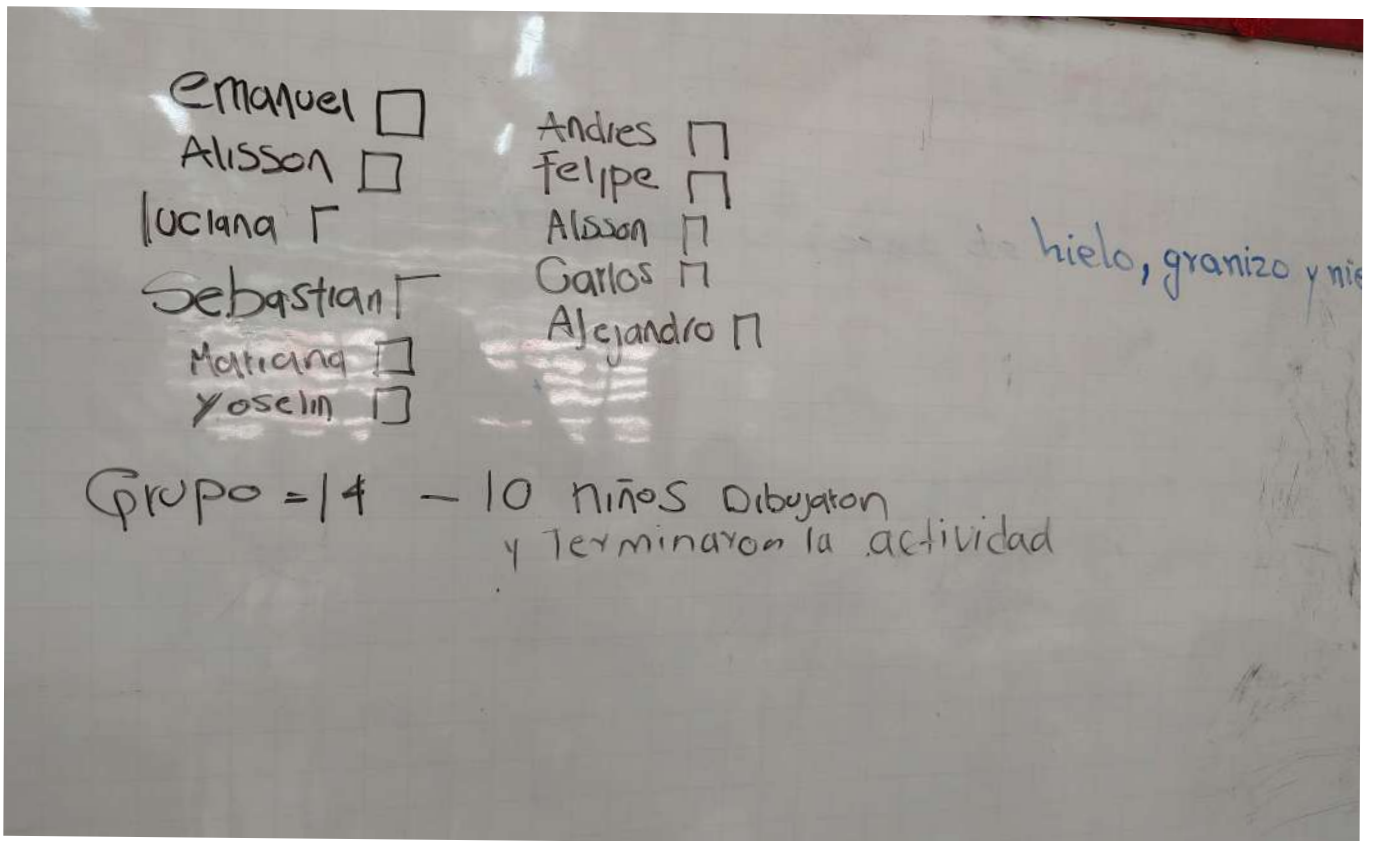 emanuel
Alisson
luciana
Sebastian
Mariana
Yoselin
Andres
Felipe
Alisson
Carlos
Alejandro
hielo, granizo y nie
Grupo = 14 - 10 niños Dibujaron
y Terminaron la actividad